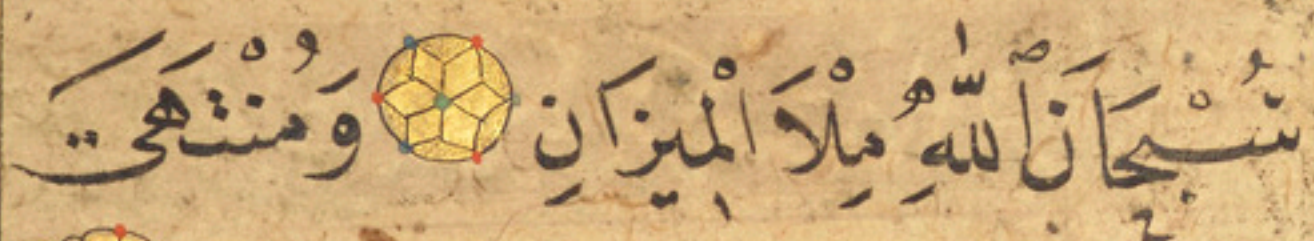 سُبْحَانَ ٱللّٰهِ مِلْاَ الْمِيزَانِ وَمُنْتَهَىَ